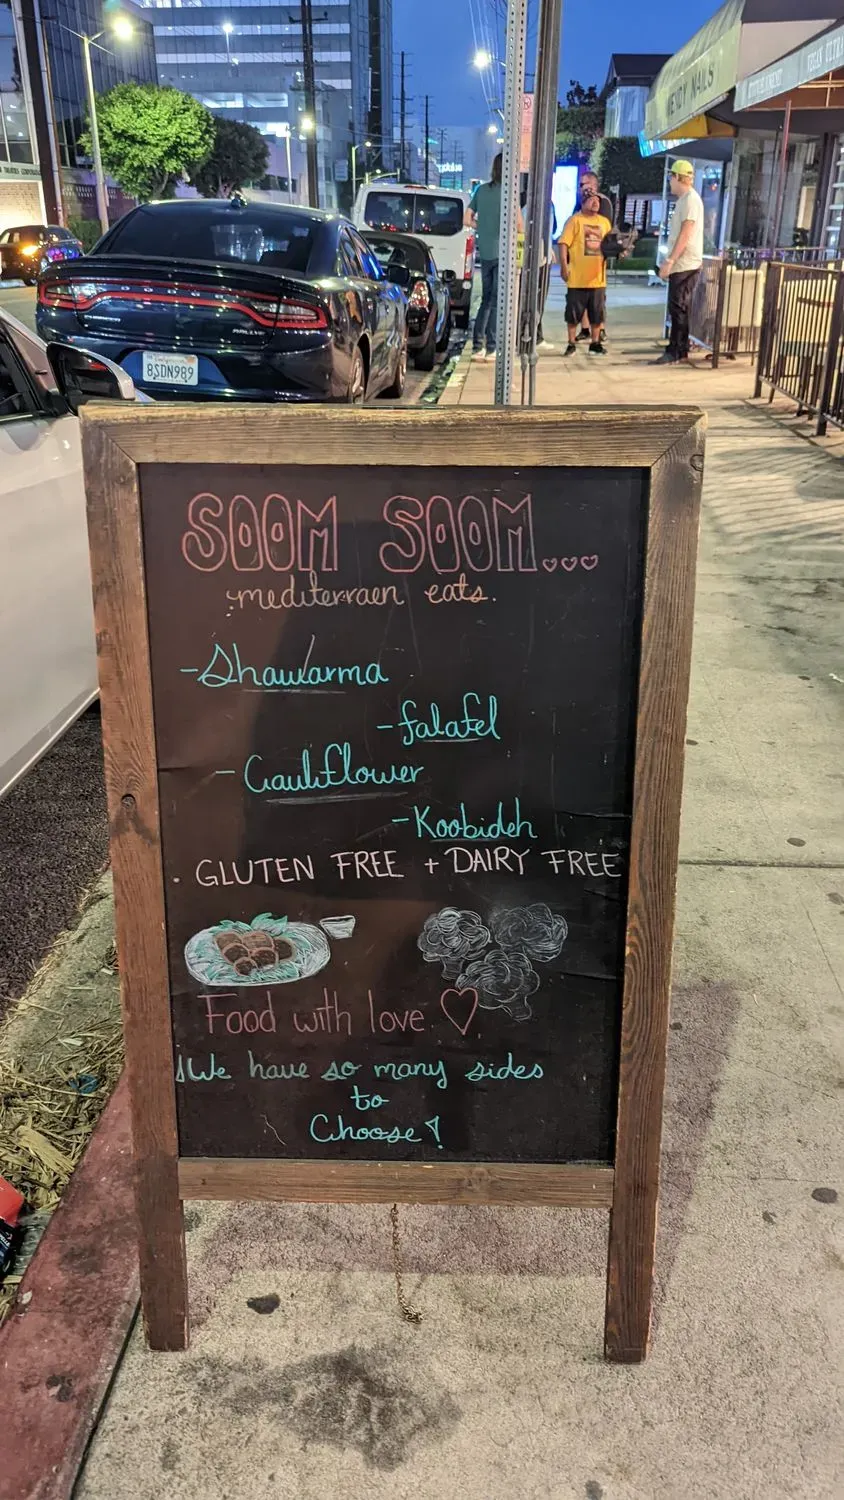 WENDY NAILS
CHARGER
8SDN989
SOOM SOOM...
mediterraen eats.
-Shawarma
-falafel
-Cauliflower
-Koobideh
. GLUTEN FREE + DAIRY FREE
Food with love
We have so many sides
to
Choose!